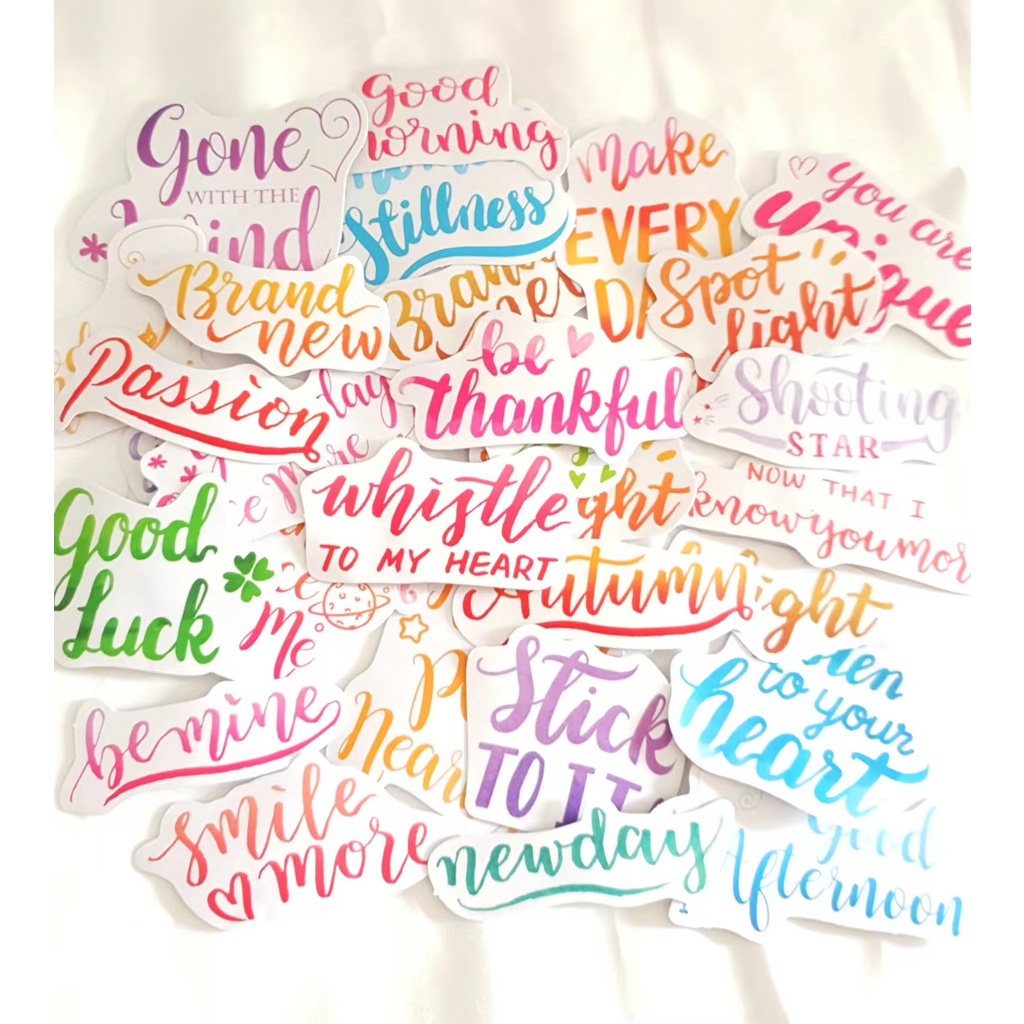 Good
morning
Gone
WITH THE
Wind
Stillness
make
EVERY
DA
You are
Unique
Brand
new
Bran
new
Spot
light
Passion
lay
be
thankful
Shooting
STAR
me more
whistle
TO MY HEART
ght
NOW THAT I
know you mor
Good
Luck
Me
Autumn
ght
be mine
P
Near
Stick
TO IT
ten
to your
heart
smile
more
newday
Good
Afternoon